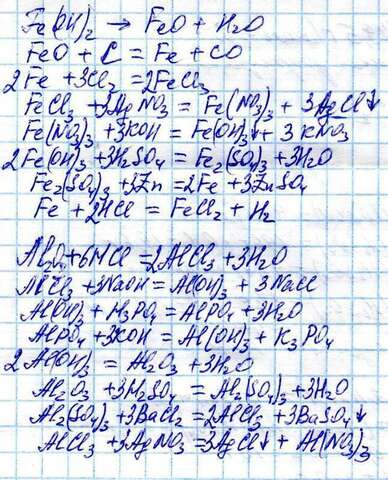 Fe(OH)₂ → FeO + H₂O
FeO + C = Fe + CO
2Fe + 3Cl₂ = 2FeCl₃
FeCl₃ + 3AgNO₃ = Fe(NO₃)₃ + 3AgCl↓
Fe(NO₃)₃ + 3KOH = Fe(OH)₃↓ + 3KNO₃
2Fe(OH)₃ + 3H₂SO₄ = Fe₂(SO₄)₃ + 3H₂O
Fe₂(SO₄)₃ + 3Zn = 2Fe + 3ZnSO₄
Fe + 2HCl = FeCl₂ + H₂
Al₂O₃ + 6HCl = 2AlCl₃ + 3H₂O
AlCl₃ + 3NaOH = Al(OH)₃ + 3NaCl
Al(OH)₃ + H₃PO₄ = AlPO₄ + 3H₂O
AlPO₄ + 3KOH = Al(OH)₃ + K₃PO₄
2Al(OH)₃ = Al₂O₃ + 3H₂O
Al₂O₃ + 3H₂SO₄ = Al₂(SO₄)₃ + 3H₂O
Al₂(SO₄)₃ + 3BaCl₂ = 2AlCl₃ + 3BaSO₄↓
AlCl₃ + 3AgNO₃ = 3AgCl↓ + Al(NO₃)₃